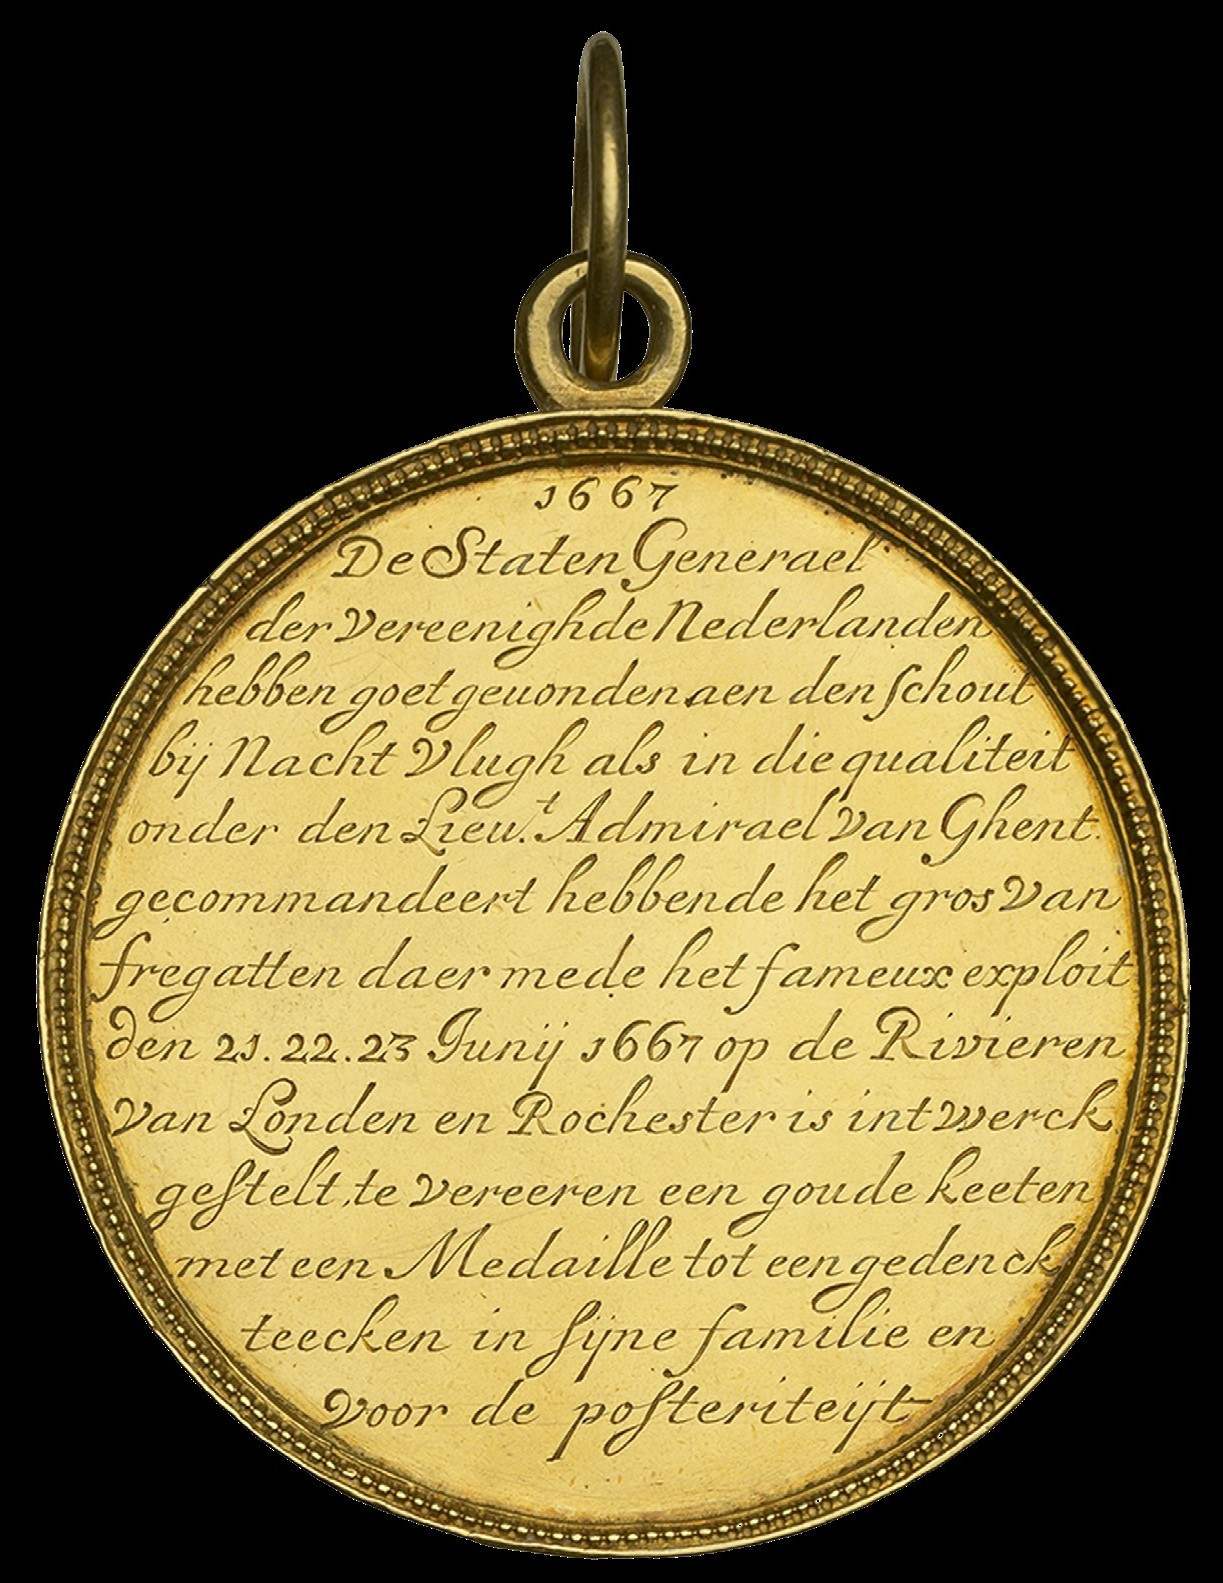 1667
De Staten Generael
der vereenighde Nederlanden
hebben goet geuonden aen den schout
bij Nacht Vlugh als in die qualiteit
onder den Lieu.t Admirael van Ghent.
gecommandeert hebbende het gros van
fregatten daer mede het fameux exploit
den 21.22.23 Junij 1667 op de Rivieren
van Londen en Rochester is int werck
gestelt, te vereeren een goude keeten
met een Medaille tot een gedenck
teecken in sijne familie en
voor de posteriteijt